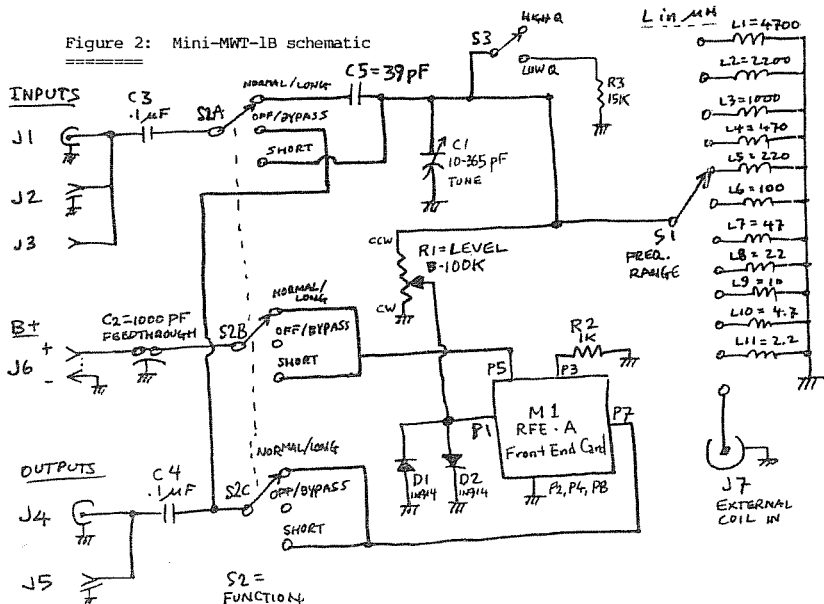 Figure 2: Mini-MWT-1B schematic
INPUTS
J1
J2
J3
C3
.1µF
S2A
NORMAL/LONG
OFF/BYPASS
SHORT
C5=39pF
S3
HIGH Q
LOW Q
R3
15K
C1
10-365 pF
TUNE
L in µH
L1=4700
L2=2200
L3=1000
L4=470
L5=220
L6=100
L7=47
L8=22
L9=10
L10=4.7
L11=2.2
S1
FREQ.
RANGE
CCW
R1=LEVEL
B-100K
CW
B+
J6
+
-
C2=1000 PF
FEEDTHROUGH
S2B
NORMAL/
LONG
OFF/BYPASS
SHORT
R2
1K
P5
P3
P1
P7
M1
RFE-A
Front End Card
P2, P4, P8
D1
1N914
D2
1N914
J7
EXTERNAL
COIL IN
OUTPUTS
J4
J5
C4
.1µF
S2C
NORMAL/LONG
OFF/BYPASS
SHORT
S2=
FUNCTION